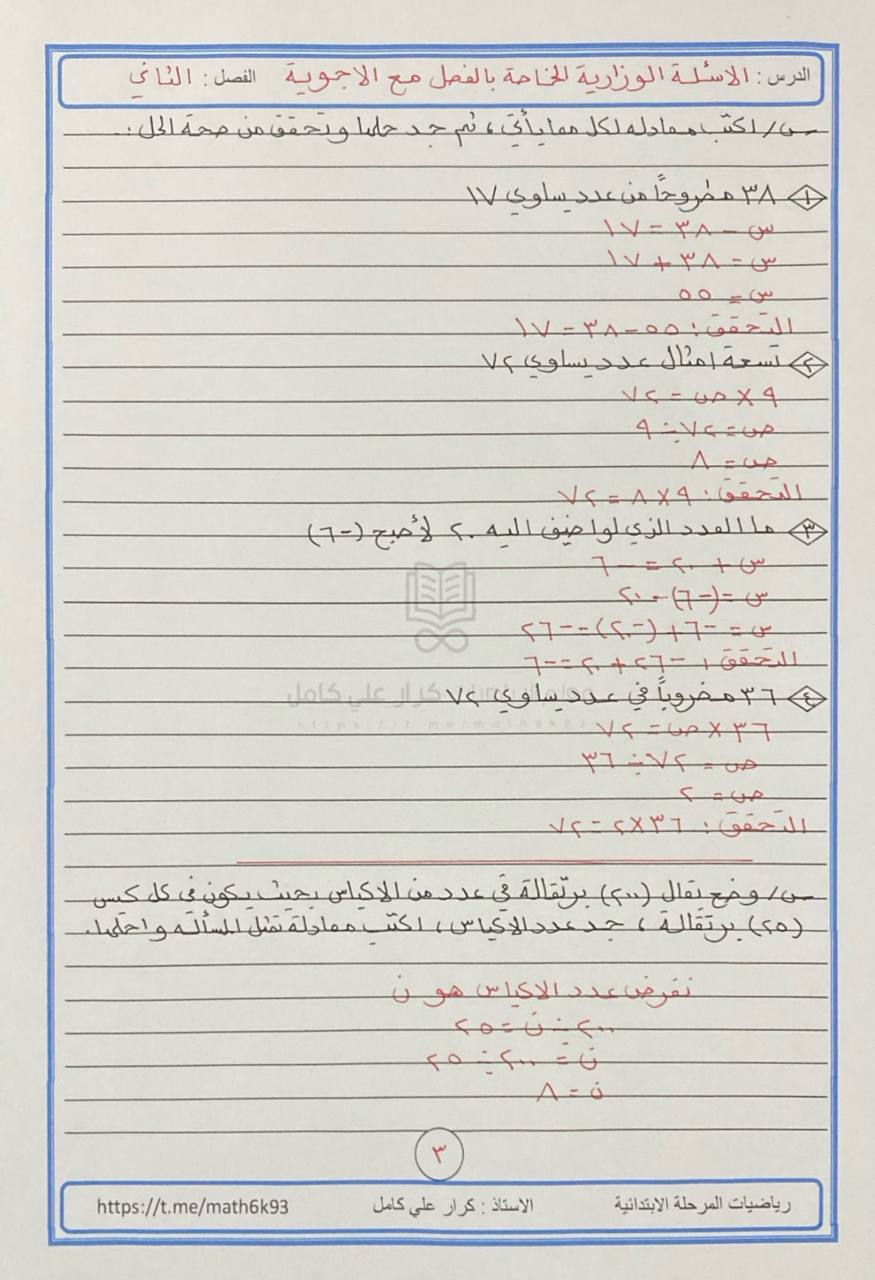 الدرس : الاسئلة الوزارية الخاصة بالفصل مع الاجوبة الفصل : الثاني
س/ اكتب معادله لكل مما يأتي ، ثم جد حلها وتحقق من صحة الحل :.
١ ٣٨ مطروحاً من عدد يساوي ١٧
س - ٣٨ = ١٧
س = ٣٨ + ١٧
س = ٥٥
التحقق : ٥٥ - ٣٨ = ١٧
٢ تسعة امثال عدد يساوي ٧٢
٩ × ص = ٧٢
ص = ٧٢ ÷ ٩
ص = ٨
التحقق : ٩ × ٨ = ٧٢
٣ ما العدد الذي لو اضيف اليه ٢٠ لأصبح (-٦)
س + ٢٠ = -٦
س = (-٦) - ٢٠
س = -٦ + (-٢٠) = -٢٦
التحقق : -٢٦ + ٢٠ = -٦
كرار علي كامل
https://t.me/math6k93
٤ ٣٦ مضروباً في عدد يساوي ٧٢
٣٦ × ص = ٧٢
ص = ٧٢ ÷ ٣٦
ص = ٢
التحقق : ٣٦ × ٢ = ٧٢
س/ وضع بقال (٢٠٠) برتقالة في عدد من الاكياس بحيث يكون في كل كيس
(٢٥) برتقالة ، جد عدد الاكياس ، اكتب معادلة تمثل المسألة و احلها.
نفرض عدد الاكياس هو ن
٢٠٠ ÷ ن = ٢٥
ن = ٢٠٠ ÷ ٢٥
ن = ٨
٣
رياضيات المرحلة الابتدائية الاستاذ : كرار علي كامل https://t.me/math6k93